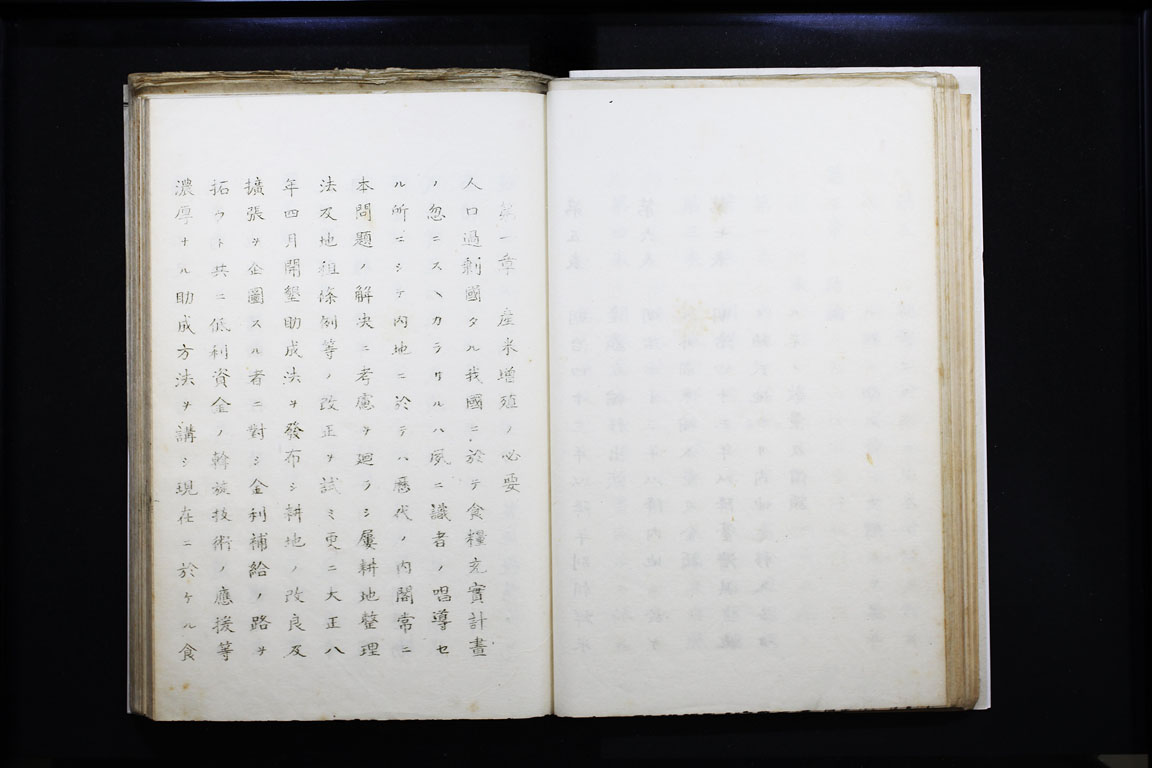 第一章 產米增殖ノ必要
人口過剰國タル我國ニ於テ食糧充實計畫
ノ忽ニスヘカラサルハ夙ニ識者ノ唱導セ
ル所ニシテ内地ニ於テハ歴代ノ内閣常ニ
本問題ノ解決ニ考慮ヲ廻ラシ屢耕地整理
法及地租條例等ノ改正ヲ試ミ更ニ大正八
年四月開墾助成法ヲ發布シ耕地ノ改良及
擴張ヲ企圖スル者ニ對シ金利補給ノ路ヲ
拓クト共ニ低利資金ノ斡旋技術ノ應援等
濃厚ナル助成方法ヲ講シ現在ニ於ケル食